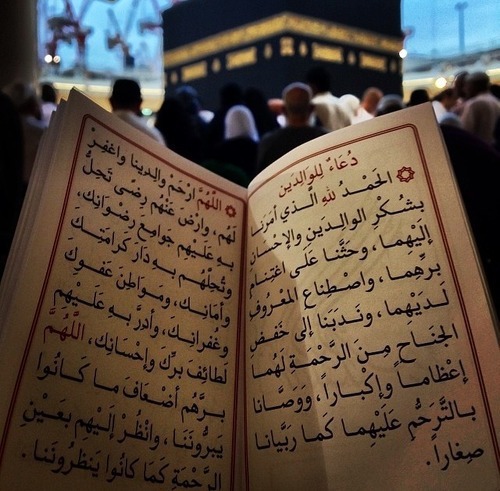 دُعَاءٌ لِلوَالِدَيْنِ
الْحَمْدُ لِلَّهِ الَّذِي أَمَرَنَا
بِشُكْرِ الْوَالِدَيْنِ وَالْإِحْسَانِ
إِلَيْهِمَا، وَحَثَّنَا عَلَى اغْتِنَامِ
بِرِّهِمَا، وَاصْطِنَاعِ الْمَعْرُوفِ
لَدَيْهِمَا، وَنَدَبَنَا إِلَى خَفْضِ
الْجَنَاحِ مِنَ الرَّحْمَةِ لَهُمَا
إِعْظَاماً وَإِكْبَاراً، وَوَصَّانَا
بِالتَّرَحُّمِ عَلَيْهِمَا كَمَا رَبَّيَانَا
صِغَاراً.
اللَّهُمَّ ارْحَمْ وَالِدِينَا وَاغْفِرْ
لَهُمْ، وَارْضَ عَنْهُمْ رِضًى تُحِلُّ
بِهِ عَلَيْهِمْ جَوَامِعَ رِضْوَانِكَ،
وَتُحِلُّهُمْ بِهِ دَارَ كَرَامَتِكَ
وَأَمَانِكَ، وَمَوَاطِنَ عَفْوِكَ
وَغُفْرَانِكَ، وَأَدِرَّ بِهِ عَلَيْهِمْ
لَطَائِفَ بِرِّكَ وَإِحْسَانِكَ، اللَّهُمَّ
بِرَّهُمْ أَضْعَافَ مَا كَانُوا
يَبَرُّونَنَا، وَانْظُرْ إِلَيْهِمْ بِعَيْنِ
الرَّحْمَةِ كَمَا كَانُوا يَنْظُرُونَنَا.